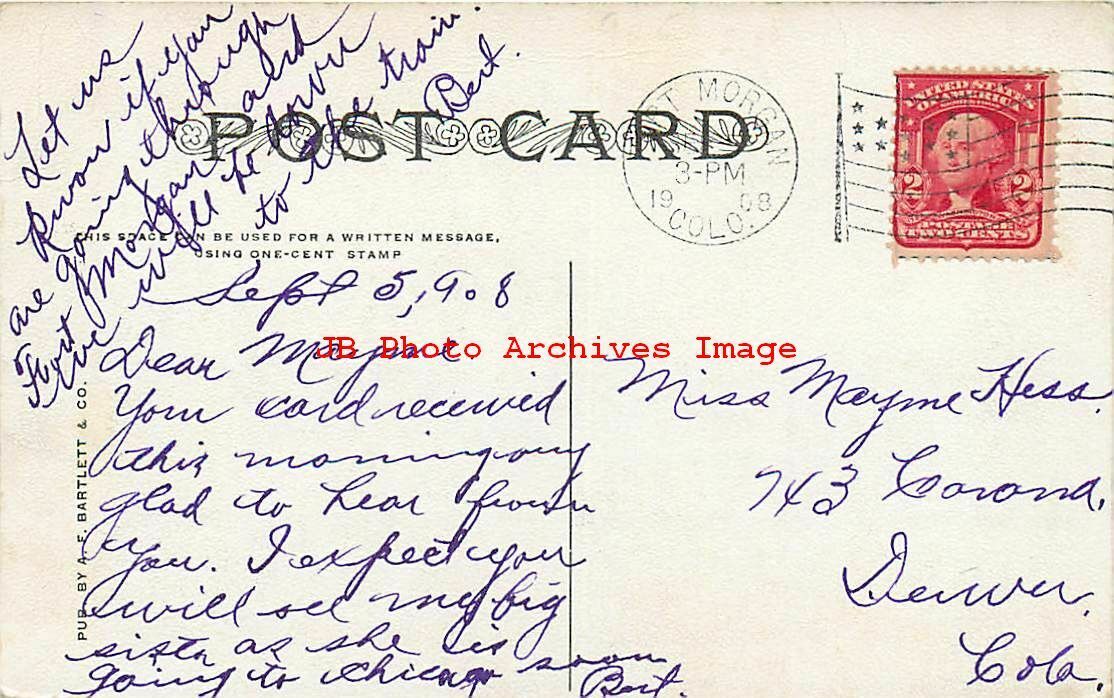 Let us
know if you
are going through
Fort Morgan and
we will be down
to the train.
Bert.
POST CARD
MORGAN
3-PM
19 08
COLO.
UNITED STATES
OF AMERICA
2 2
TWO CENTS
THIS SPACE CAN BE USED FOR A WRITTEN MESSAGE,
USING ONE-CENT STAMP
Sept 5, 908
Dear Mayme
Your card received
this morning
glad to hear from
you. I expect you
will see my big
sister as she is
going to Chicago soon
Bert.
JB Photo Archives Image
Miss Mayme Hess.
743 Corona.
Denver.
Colo.
PUB. BY A. E. BARTLETT & CO.